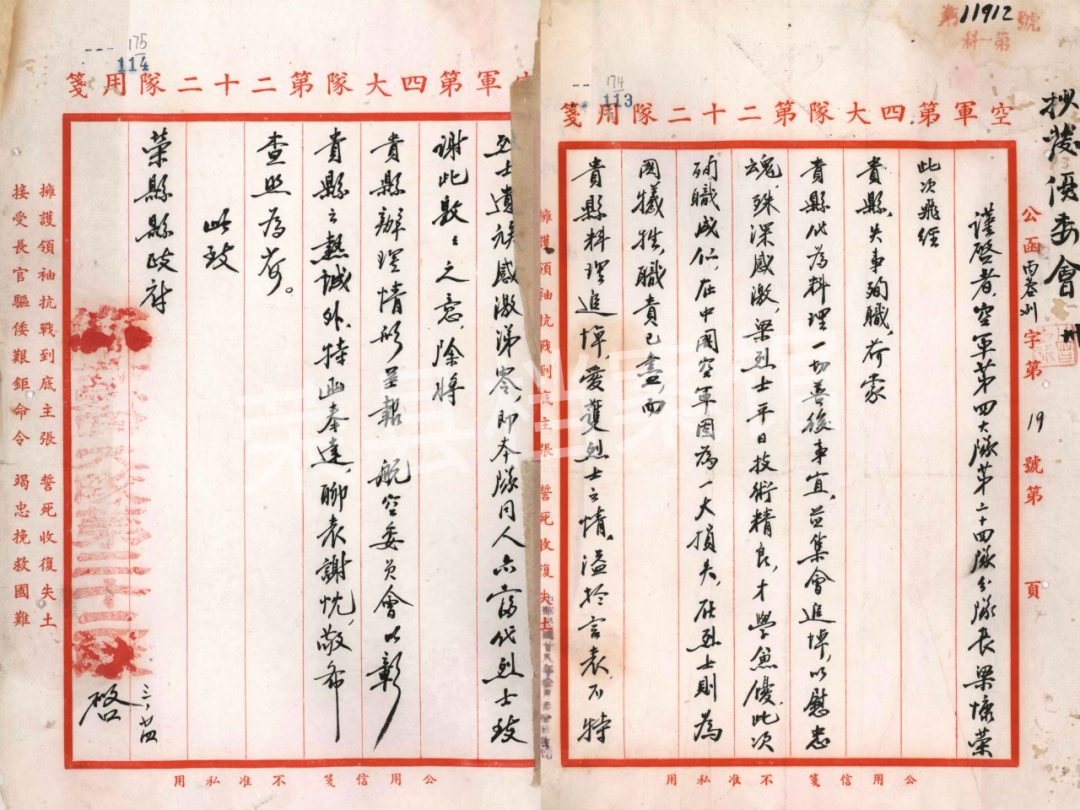 第11912號
第一科
抄發優委會
174
113
空軍第四大隊第二十二隊用箋
公函 字第19號第 頁
謹啓者,空軍第四大隊第二十四隊分隊長梁慷榮
此次飛經
貴縣,失事殉職,荷蒙
貴縣代為料理一切善後事宜,並集會追悼,以慰忠
魂,殊深感激,梁烈士平日技術精良,才學兼優,此次
殉職成仁,在中國空軍固為一大損失,在烈士則為
國犧牲,職責已盡,而
貴縣料理追悼,愛護烈士之情,溢於言表,不特
擁護領袖抗戰到底主張 誓死收復失土
公用信箋 不准私用
175
114
空軍第四大隊第二十二隊用箋
烈士遺族感激涕零,即本隊同人亦當代烈士致
謝此數之意,除將
貴縣辦理情形呈報 航空委員會以彰
貴縣之熱誠外,特函奉達,聊表謝忱,敬希
查照為荷。
此致
榮縣縣政府
啓 三、廿四
擁護領袖抗戰到底主張 誓死收復失土
接受長官驅倭艱鉅命令 竭忠挽救國難
公用信箋 不准私用